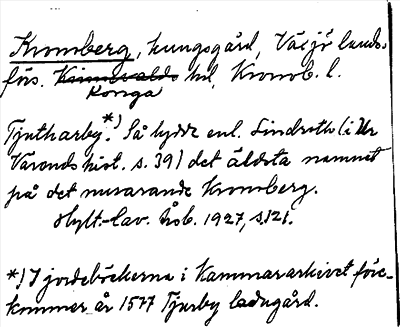 Kronoberg, kungsgård, Växjö lands-
förs. Kinnevalds hd, Kronob. l.
Konga
Tjutharby.*) Så lydde enl. Lindroth (i Ur
Värends hist. s. 39) det äldsta namnet
på det nuvarande Kronoberg.
Hylt.-Cav. årsb. 1927, s. 121.
*) I jordeböckerna i Kammararkivet före-
kommer år 1577 Tjurby ladugård.